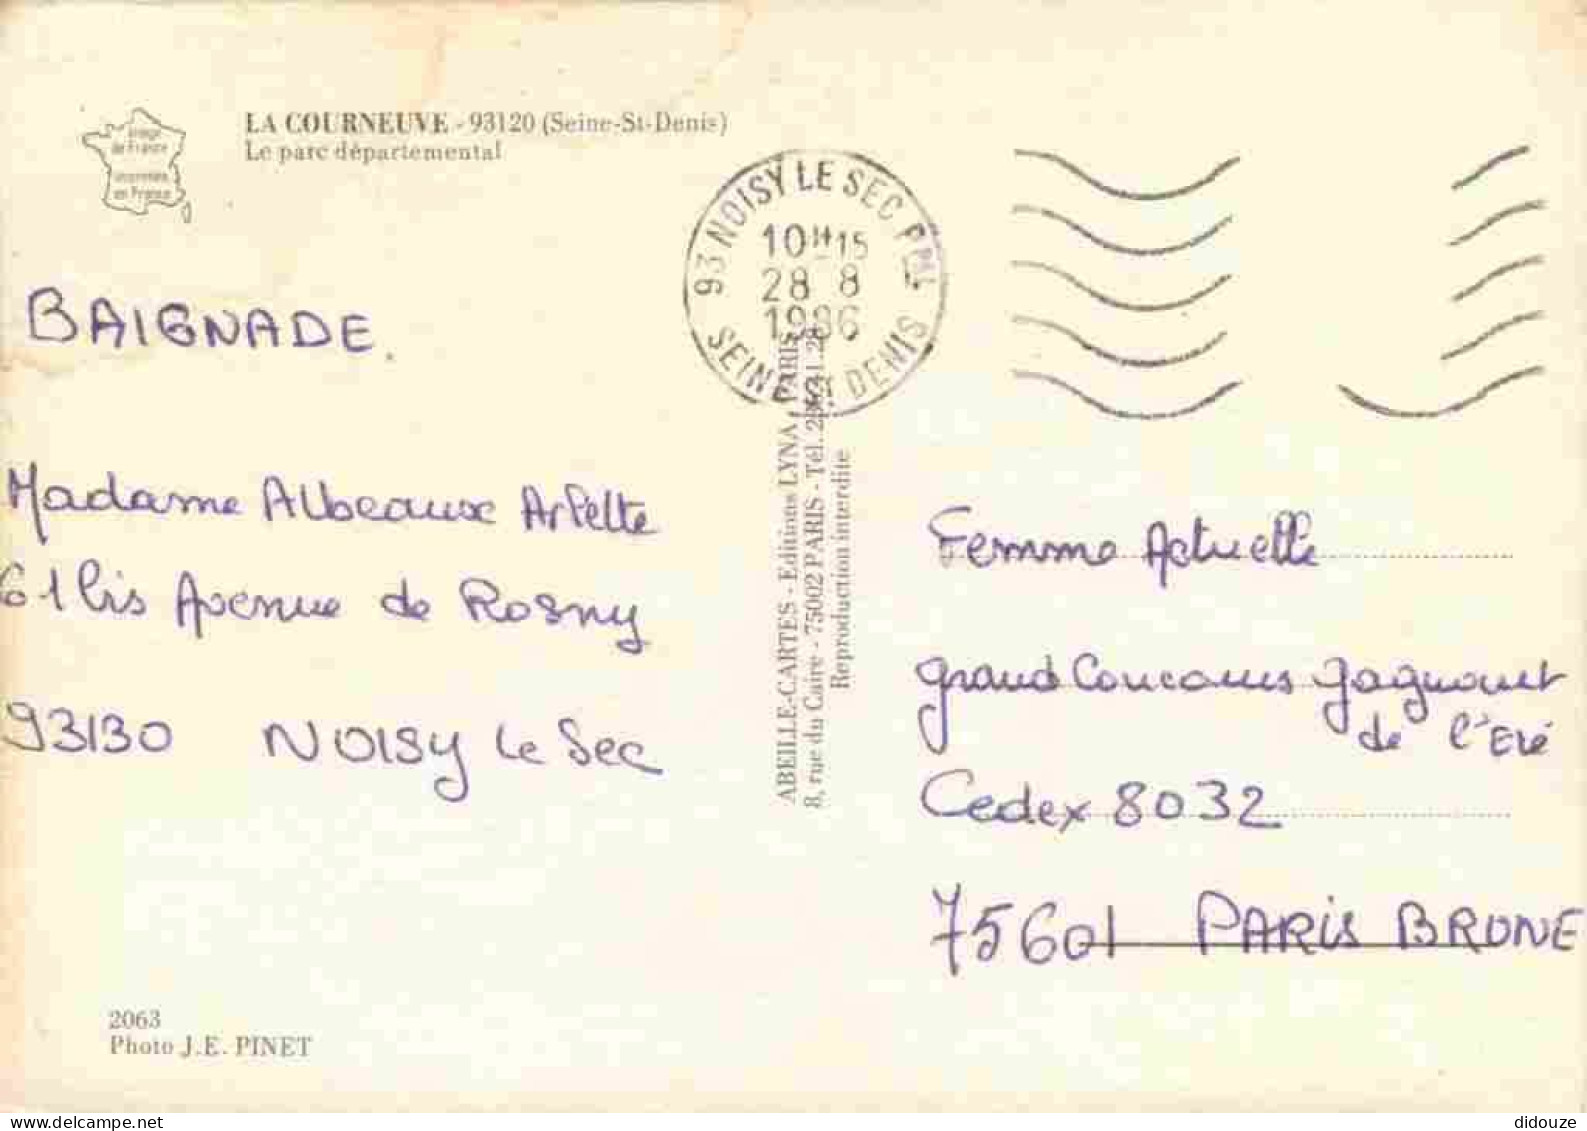 LA COURNEUVE - 93120 (Seine-St-Denis)
Le parc départemental
Image
de France
imprimée
en France
93 NOISY LE SEC PPAL
10H15
28 8
1986
SEINE ST DENIS
BAIGNADE.
Madame Albeaux Arlette
61 bis Avenue de Rosny
93130 NOISY Le Sec
ABEILLE-CARTES - Editions LYNA - PARIS
8, rue du Caire - 75002 PARIS - Tél.
Reproduction interdite
Femme Actuelle
grand Concours gagnant
de l'Eté
Cedex 8032
75601 PARIS BRUNE
2063
Photo J.E. PINET
didouze